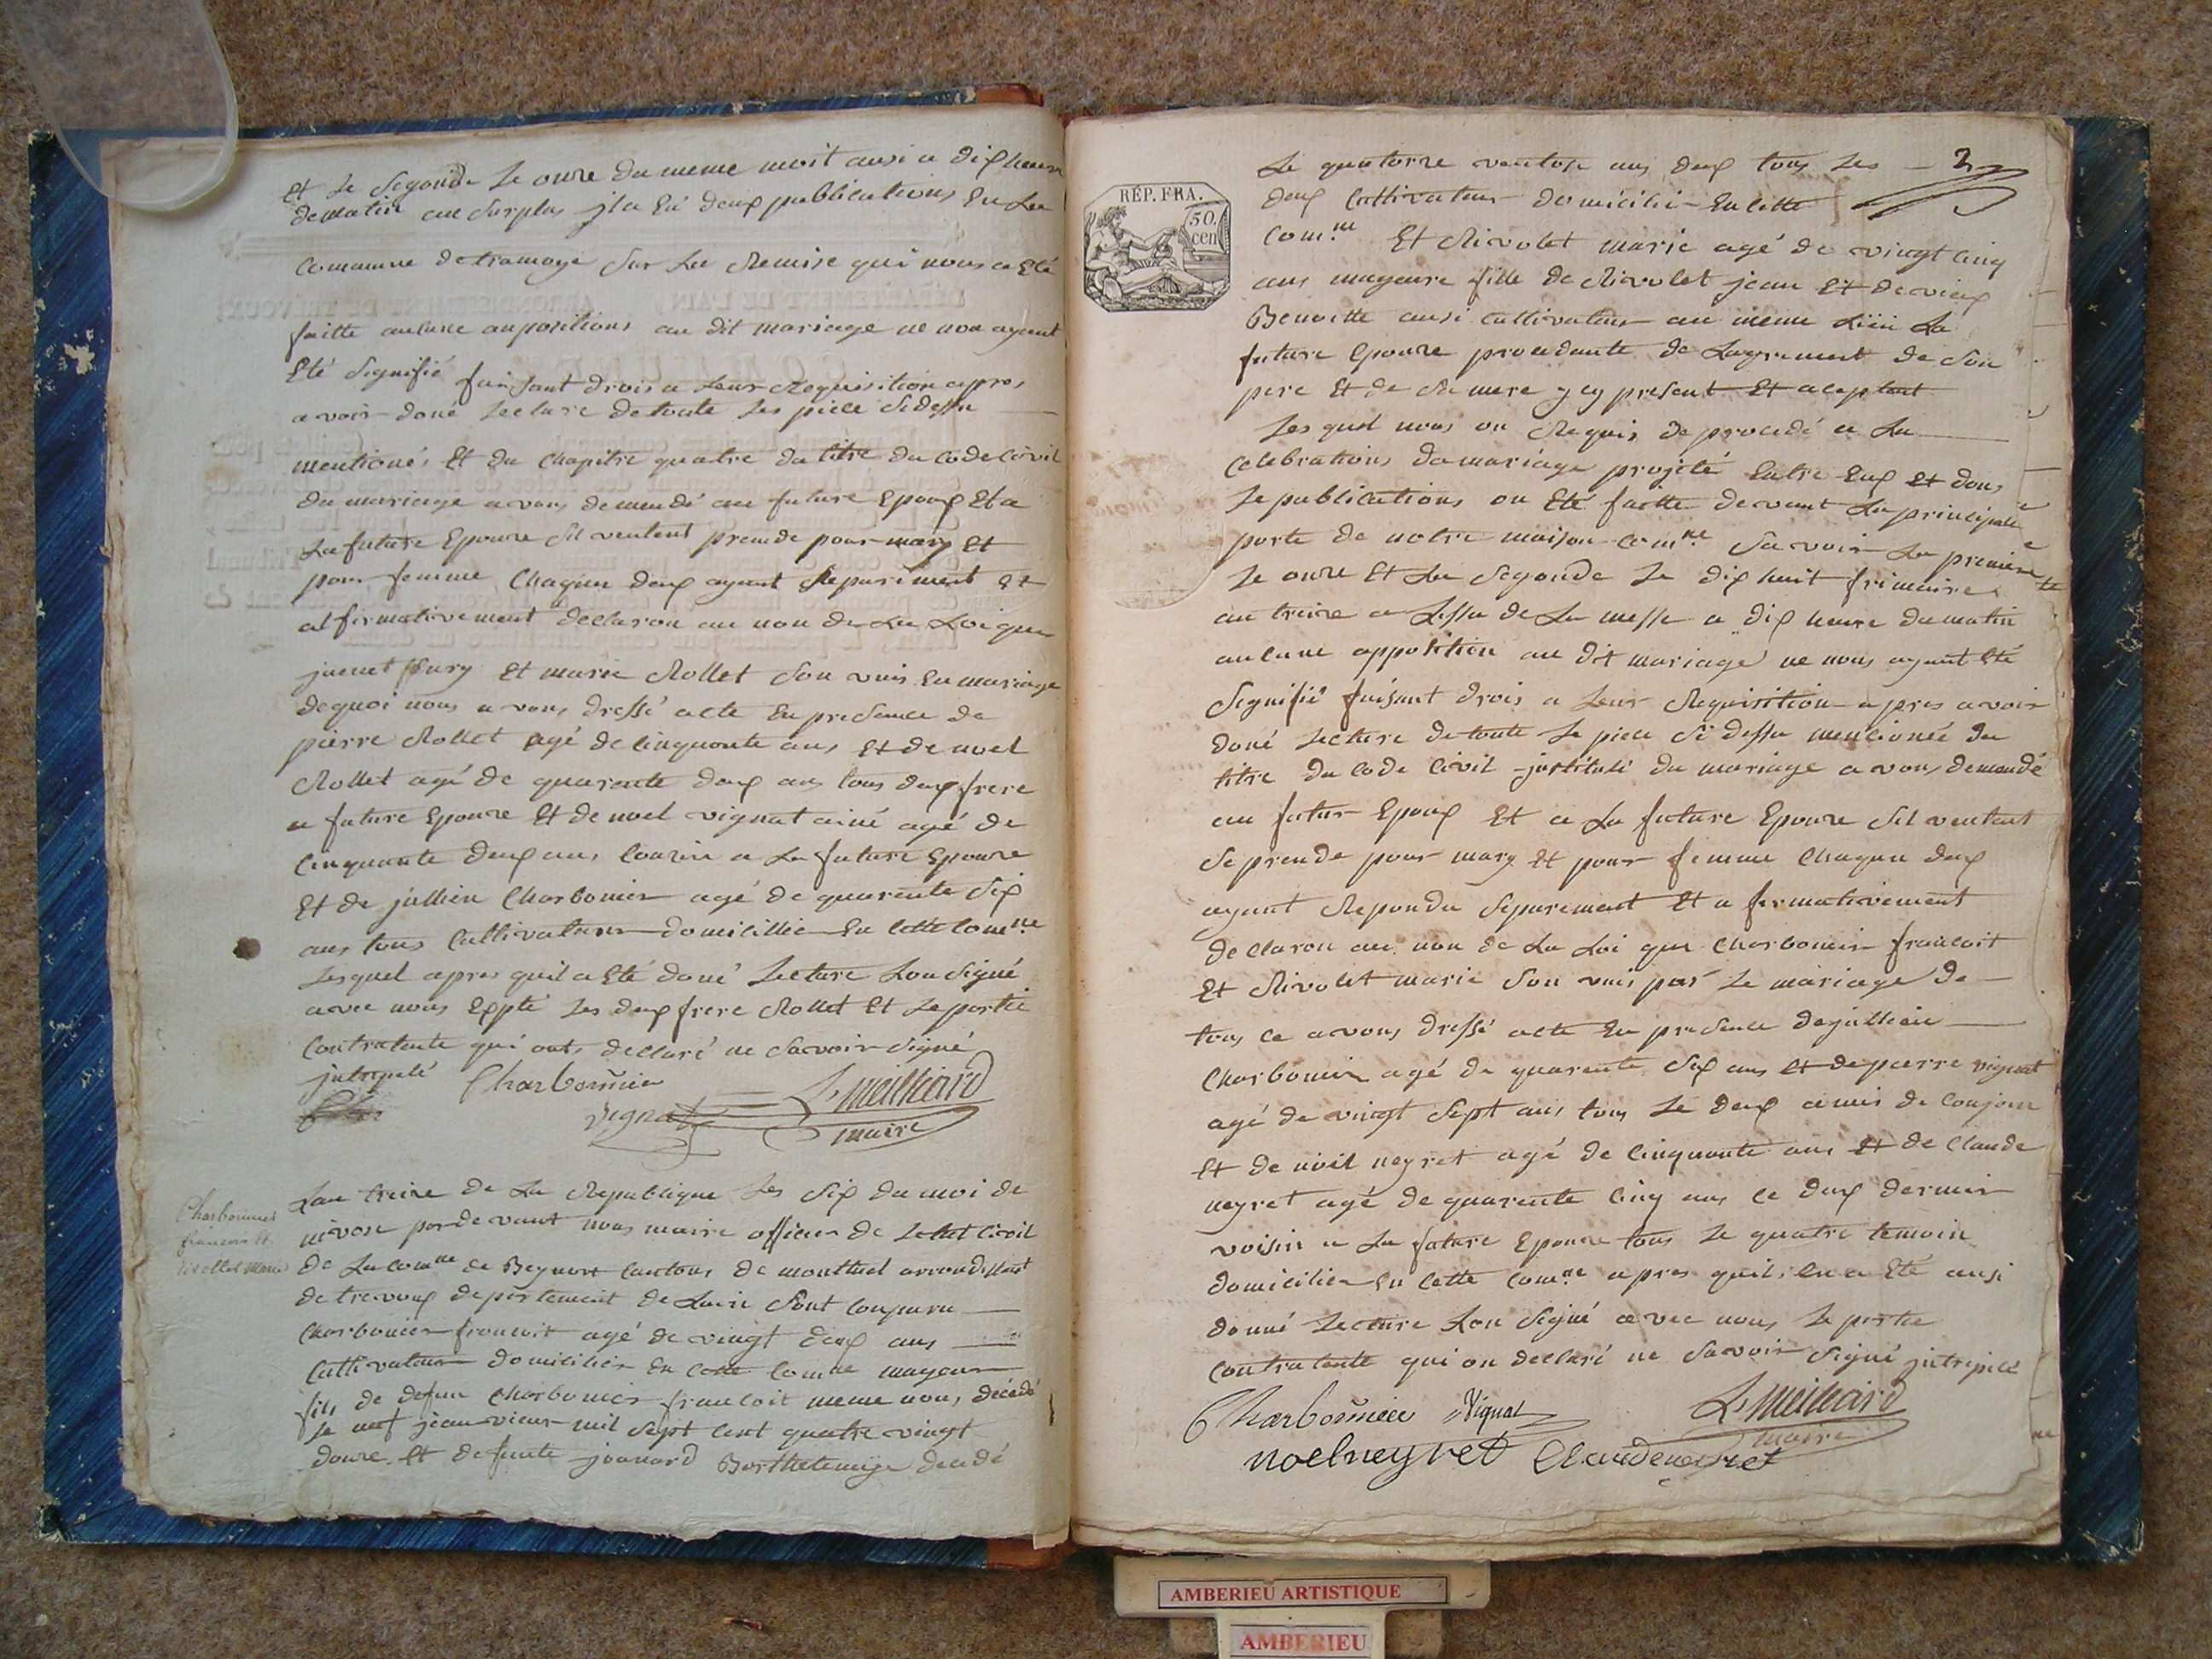 Et le Segonde le onze du meme moit ausi a dix heure
de matin au Surplus jl a Eu deux pubblications En La
Commune de tramoye Sur La Remise qui nous a Eté
faitte aucune oupositions au dit mariage ne nou ayant
Eté Signifié faissant drois a leur Requisition apres
avoir doné Lecture de toute les piece Sidessu
mentionés Et du Chapitre quatre du titre du Code Civil
du mariage avons demendé au future Epoux Et a
La future Epouze Sil veulent prende pour mary Et
pour femme Chaqun deux ayant Separiment Et
alfirmativement declaron au non de La Loi que
jury Et marie Rollet Son unis En mariage
de quoi nous avons dressé acte En presence de
pierre Rollet agé de Cinquante ans Et de noel
Rollet agé de quarente deux ans tous deux frere
a future Epouze Et de noel vignat ainé agé de
Cinquante deux ans Couzin a La future Epouze
Et de jullien Charbonier agé de quarente Six
ans tous Cultivateur domicillié En Cette Comne
Lesquel apres quil a Eté doné Lecture Lon Signé
avec nous Expté les deux frere Rollet Et Le partie
Contratente qui onts declaré ne Savoir Signé
jnterpelé Charbonnier L. Meilheard
Vignat maire
Charbonnier
francoi Et
Rivollet Marie
Lan treize de La Republique Les Six du moi de
nivose par devant nous maire officier de Letat Civil
de La Comne de Beynost Cantons de montluel arrondissant
de trevoux departement de Lain Sont Conparu
Charbonier francoit agé de vingt deux ans
Cultivateur domicilier En Cette Comne mageur
fils de defun Charbonier francoit meme nons decedé
le neuf jeanvier mil Sept Cent quatre vingt
douze Et defunte jounard Barthelemye decedé
RÉP. FRA.
50.
cen
Le quatorze ventose ans deux tous Les 2
deux Cultivateur domicilié En Cette
Comne Et Rivolet marie agé de vingt Cinq
ans mageure fille de Rivolet jean Et de vieux
Benoitte ausi Cultivateur au meme Liüi La
future Epouze procedante de Lagrement de Son
pere Et de Sa mere y cy present Et aceptant
Les quel nous on Requis de procedé a La
Celebrations du mariage projeté Entre Eux Et dons
Le publications on Eté faitte devant La principale
porte de notre maison Comne Savoir La premiere
Le onze Et La Segonde Le dix huit frimaire
an treize a Lissu de La messe a dix heure du matin
aucune opposition au dit mariage ne nous ayant Eté
Signifié faisant drois a leur Requisition apres avoir
doné Lecture de toute Le piece Si dessu mentionée du
titre du Code Civil jnstitulé du mariage avons demandé
au futur Epoux Et a La future Epouze Sil veulent
Se prende pour mary Et pour femme Chaqun deux
ayant Repondu Separement Et a firmativement
declaron au non de La Loi que Charbonier francoit
Et Rivolet marie Son unis par Le mariage de
tous Ce avons dressé acte En presence de jullien
Charbonier agé de quarente Six ans Et de pierre vignat
agé de vingt Sept ans tous Le deux amis de Conjoin
Et de noil neyret agé de Cinquante ans Et de Claude
neyret agé de quarente Cinq ans Ce deux dernier
voisin a La future Epouze tous Le quatre temoin
domicilier En Cette Comne apres quil En a Eté ausi
donné Lecture Lon Signé avec nous Le partie
Contratente qui on declaré ne Savoir Signé jnterpelé
Charbonnier Vignat L. Meilheard
maire
noel neyret Claude neyret
AMBERIEU ARTISTIQUE
AMBERIEU